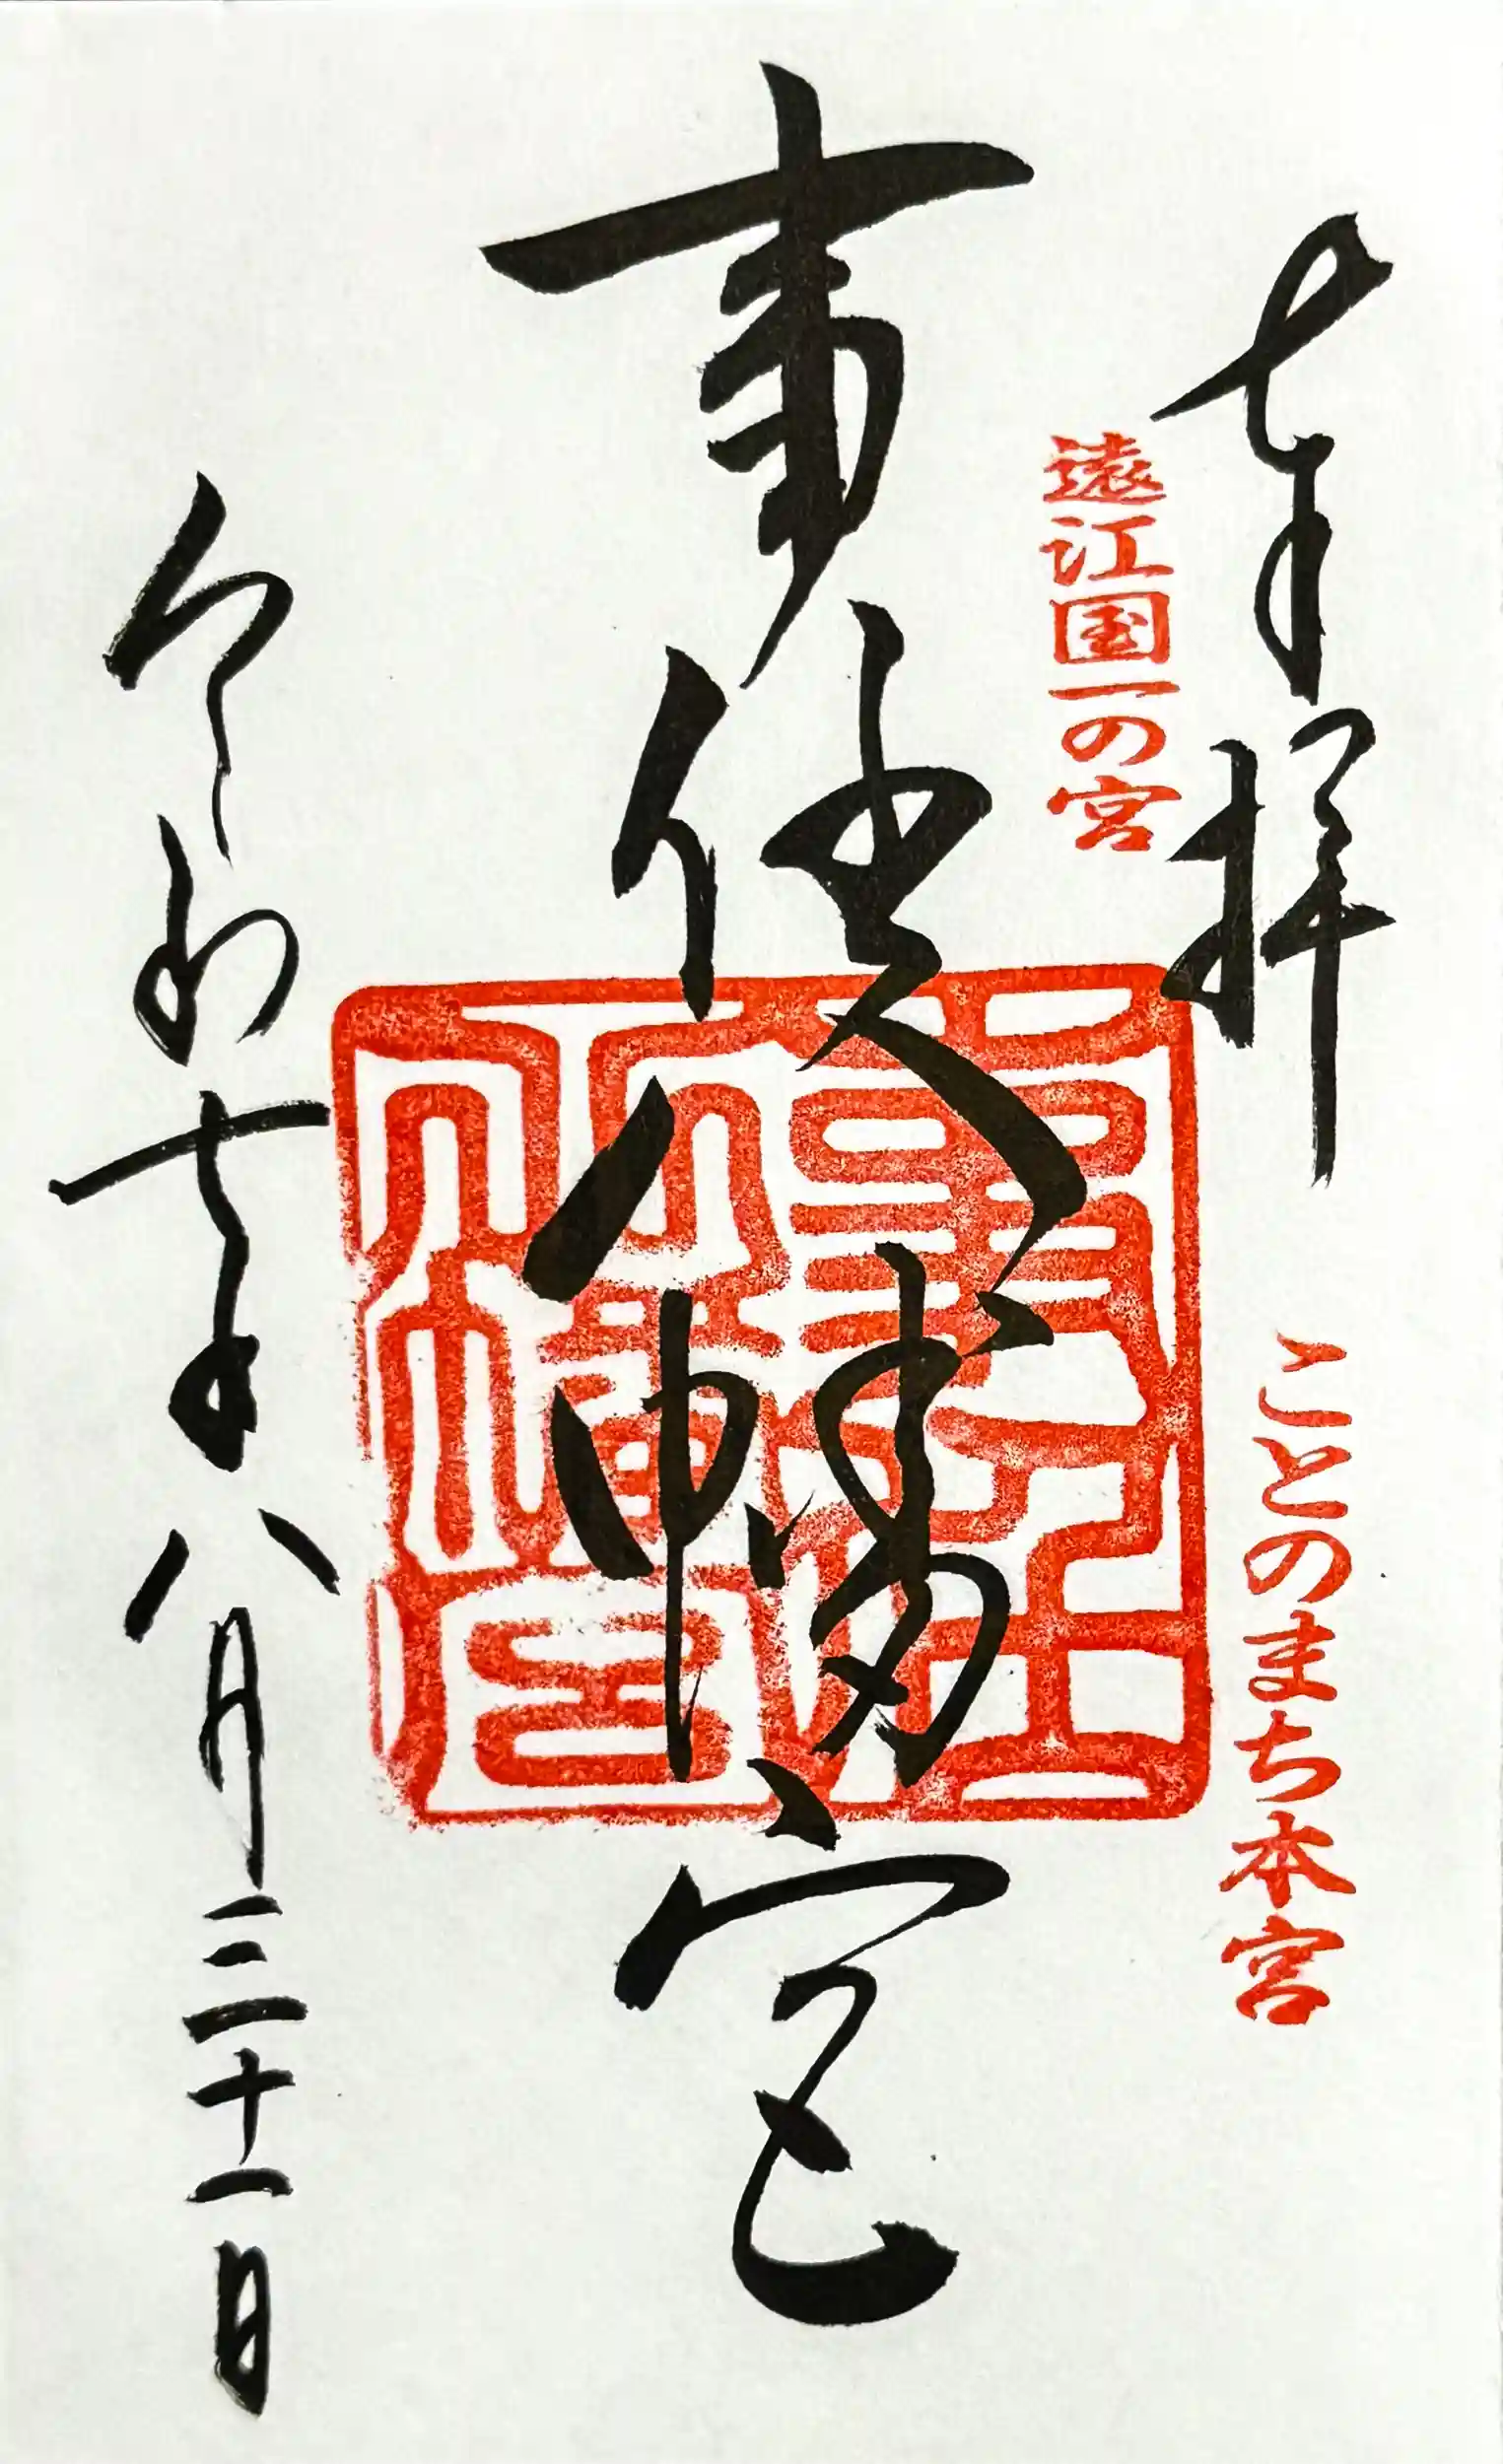 奉拝
遠江国一の宮
ことのまち本宮
事任八幡宮
事任八幡宮
令和七年八月三十一日